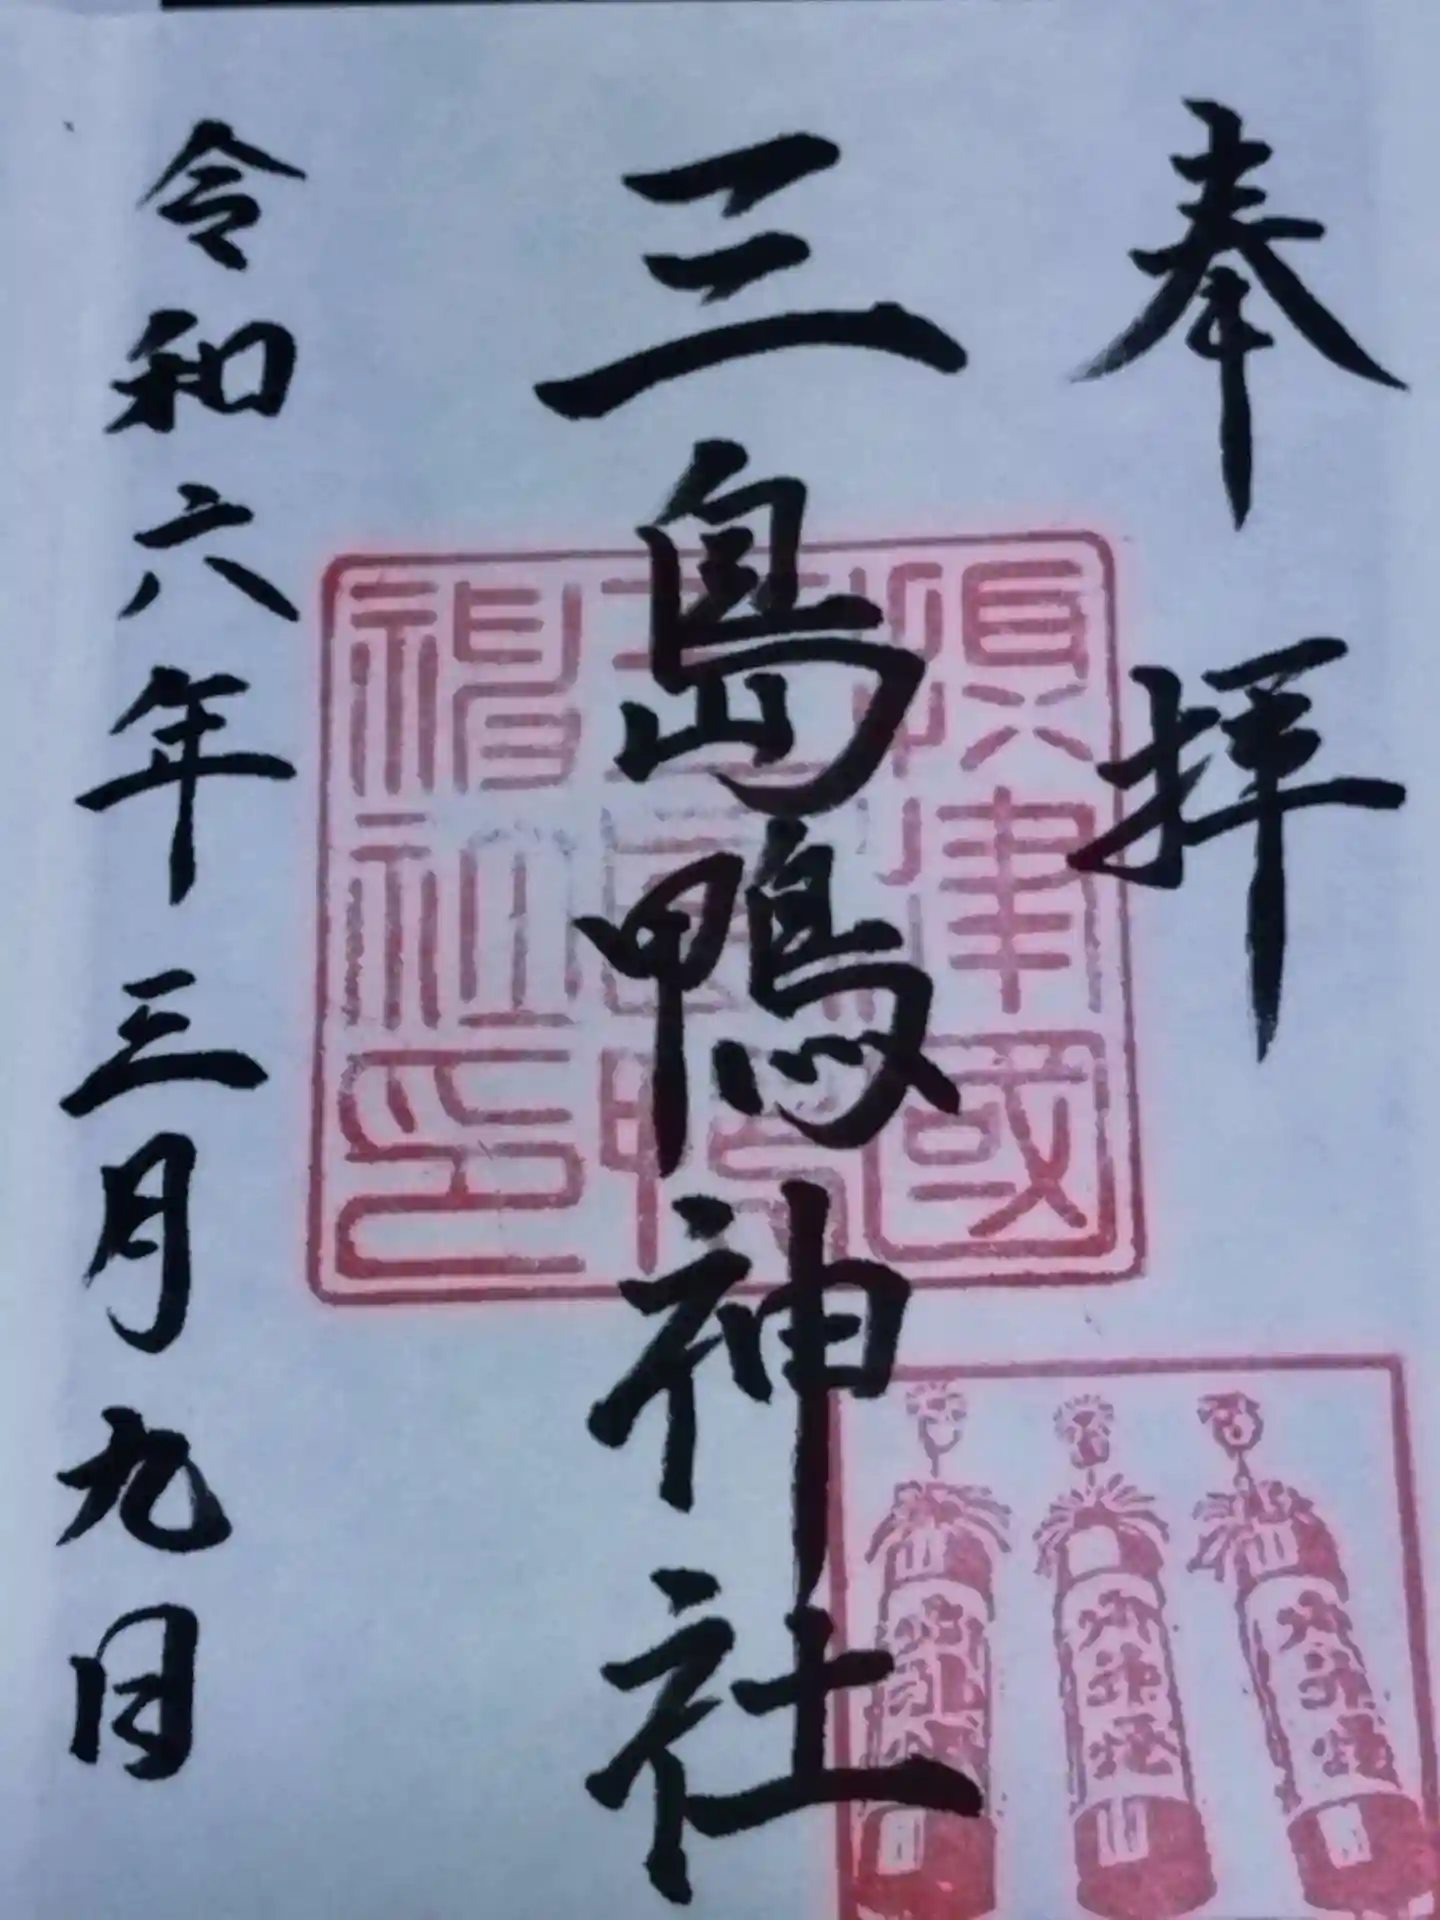 奉拝
三島鴨神社
令和六年三月九日
津國
三島鴨
神社印